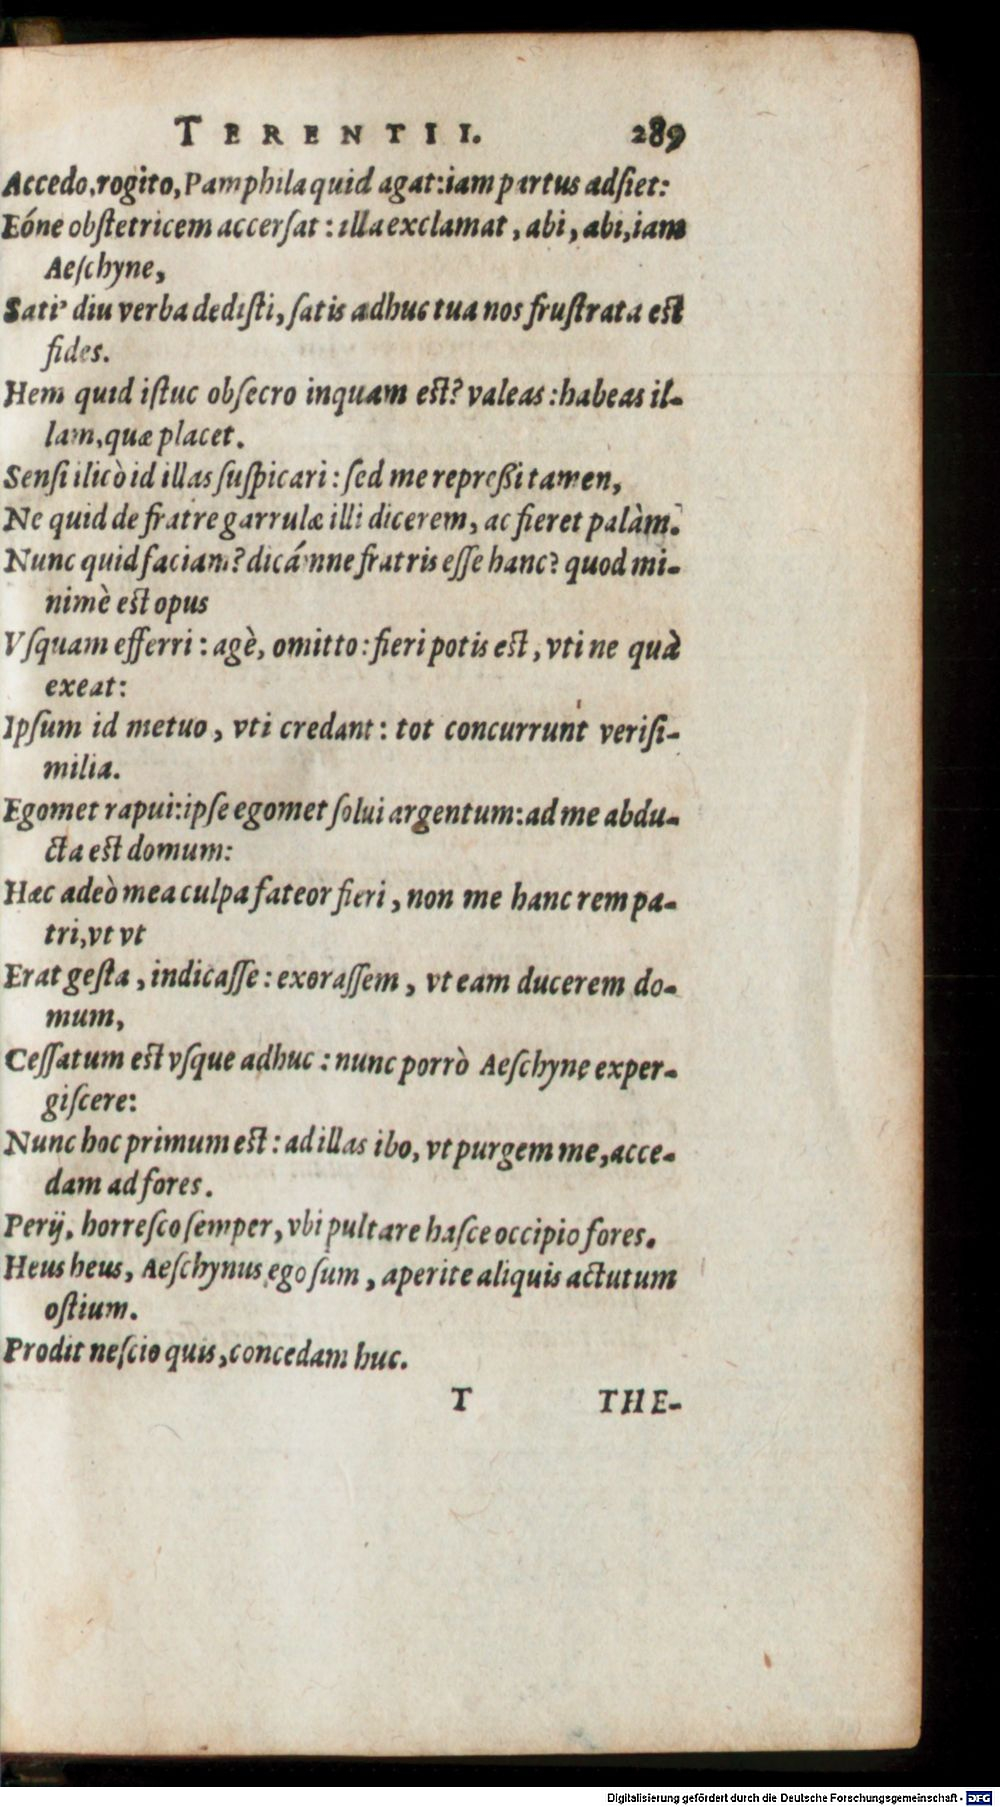 TERENTII. 289
Accedo, rogito, Pamphila quid agat: iam partus adſiet:
Eóne obſtetricem accerſat: illa exclamat, abi, abi, iam
Aeſchyne,
Sati' diu verba dediſti, ſatis adhuc tua nos fruſtrata eſt
fides.
Hem quid iſtuc obſecro inquam eſt? valeas: habeas il-
lam, quæ placet.
Senſi ilicò id illas ſuſpicari: ſed me repreßi tamen,
Ne quid de fratre garrulæ illi dicerem, ac fieret palàm.
Nunc quid faciam? dicámne fratris eſſe hanc? quod mi-
nimè eſt opus
Vſquam efferri: agè, omitto: fieri potis eſt, vti ne quà
exeat:
Ipſum id metuo, vti credant: tot concurrunt veriſi-
milia.
Egomet rapui: ipſe egomet ſolui argentum: ad me abdu-
cta eſt domum:
Hæc adeò mea culpa fateor fieri, non me hanc rem pa-
tri, vt vt
Erat geſta, indicaſſe: exoraſſem, vt eam ducerem do-
mum,
Ceſſatum eſt vſque adhuc: nunc porrò Aeſchyne exper-
giſcere:
Nunc hoc primum eſt: ad illas ibo, vt purgem me, acce-
dam ad fores.
Perij, horreſco ſemper, vbi pultare haſce occipio fores.
Heus heus, Aeſchynus ego ſum, aperite aliquis actutum
oſtium.
Prodit neſcio quis, concedam huc.
T THE-
Digitalisierung gefördert durch die Deutsche Forschungsgemeinschaft - DFG